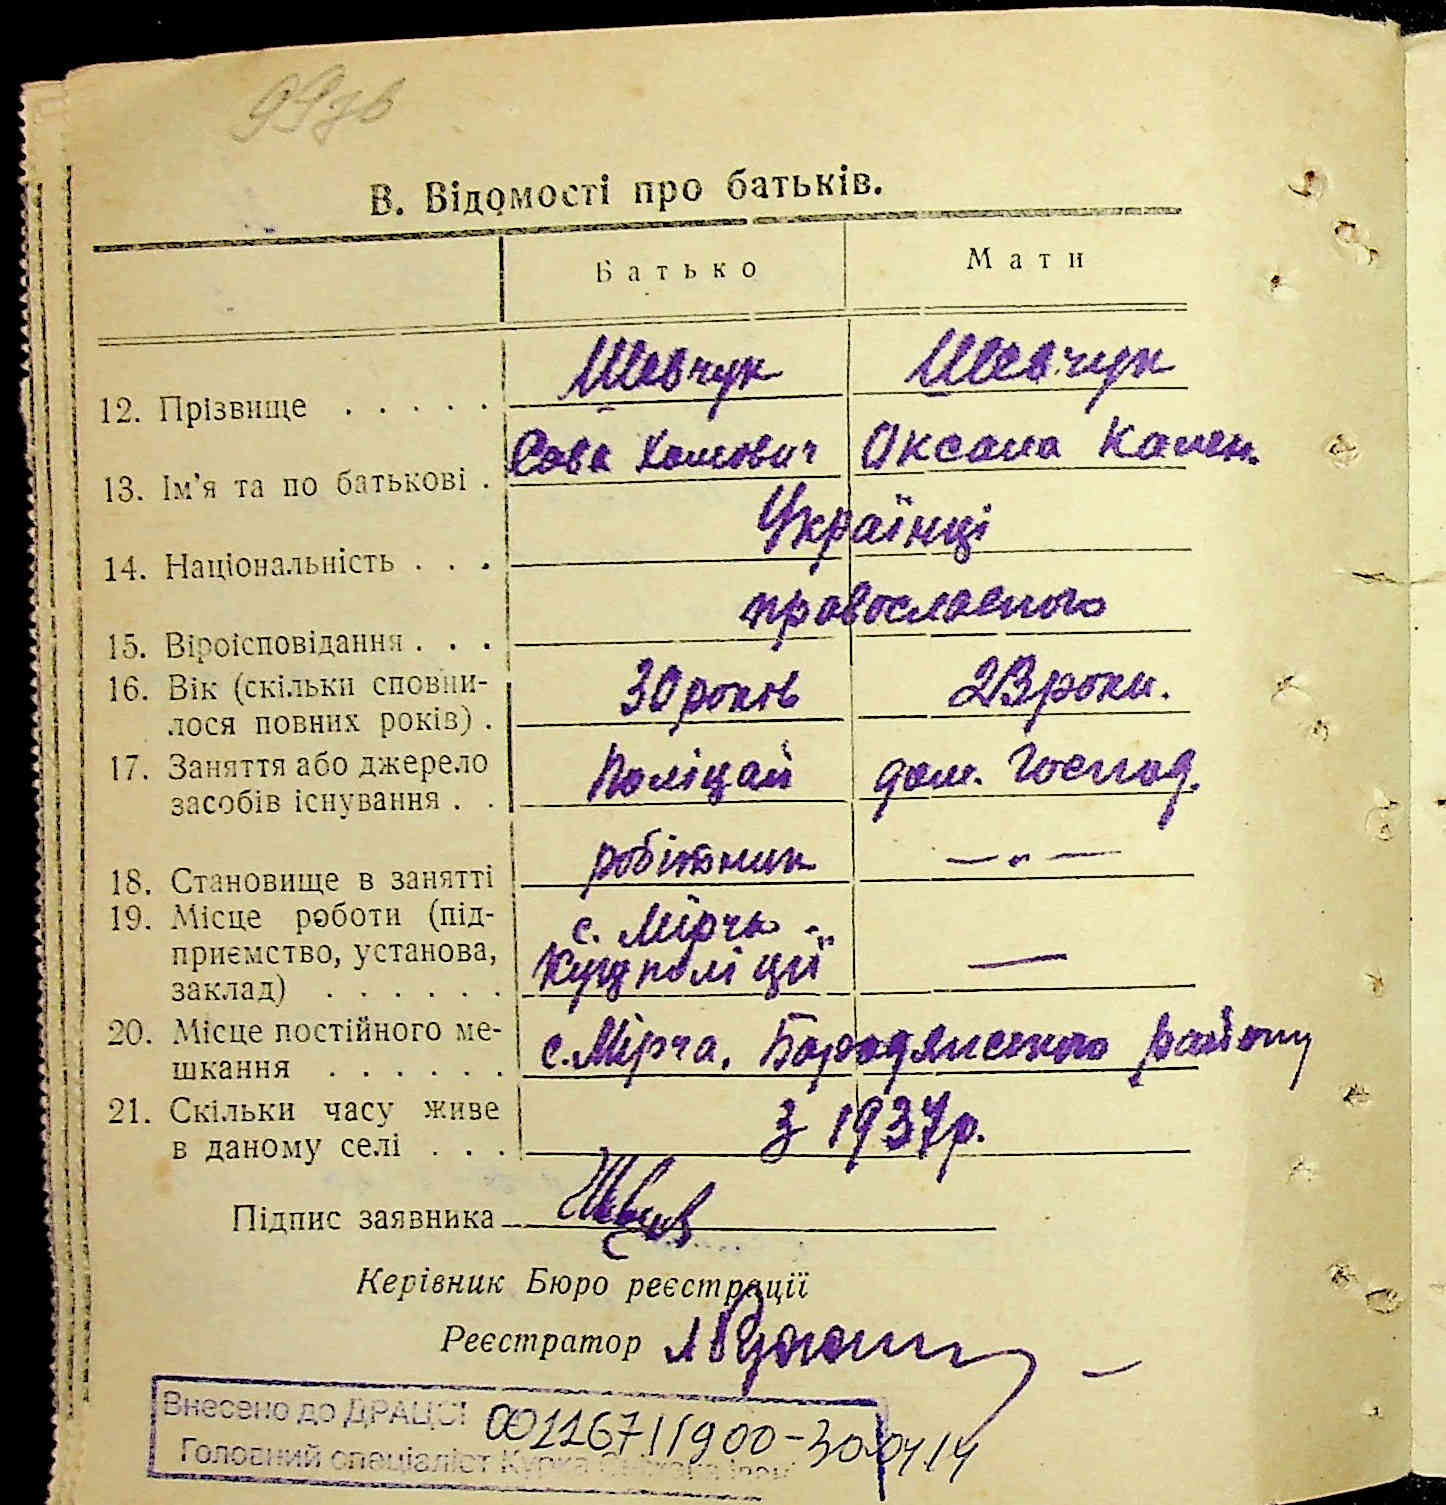 99зв
В. Відомості про батьків.
Батько Мати
12. Прізвище . . . . . Шевчук Шевчук
13. Ім'я та по батькові . Сава Хомович Оксана Камен.
14. Національність . . . Українці
15. Віроісповідання . . . православного
16. Вік (скільки сповни-
лося повних років) . 30 років 23 роки.
17. Заняття або джерело
засобів існування . . Поліцай дом. господ.
18. Становище в занятті робітник —„—
19. Місце роботи (під-
приємство, установа,
заклад) . . . . . . с. Мірча
Кущ поліції —
20. Місце постійного ме-
шкання . . . . . . с. Мірча, Бородянського району
21. Скільки часу живе
в даному селі . . . З 1937 р.
Підпис заявника
Керівник Бюро реєстрації
Реєстратор
Внесено до ДРАЦСГ 00116711900-30.04.14
Головний спеціаліст